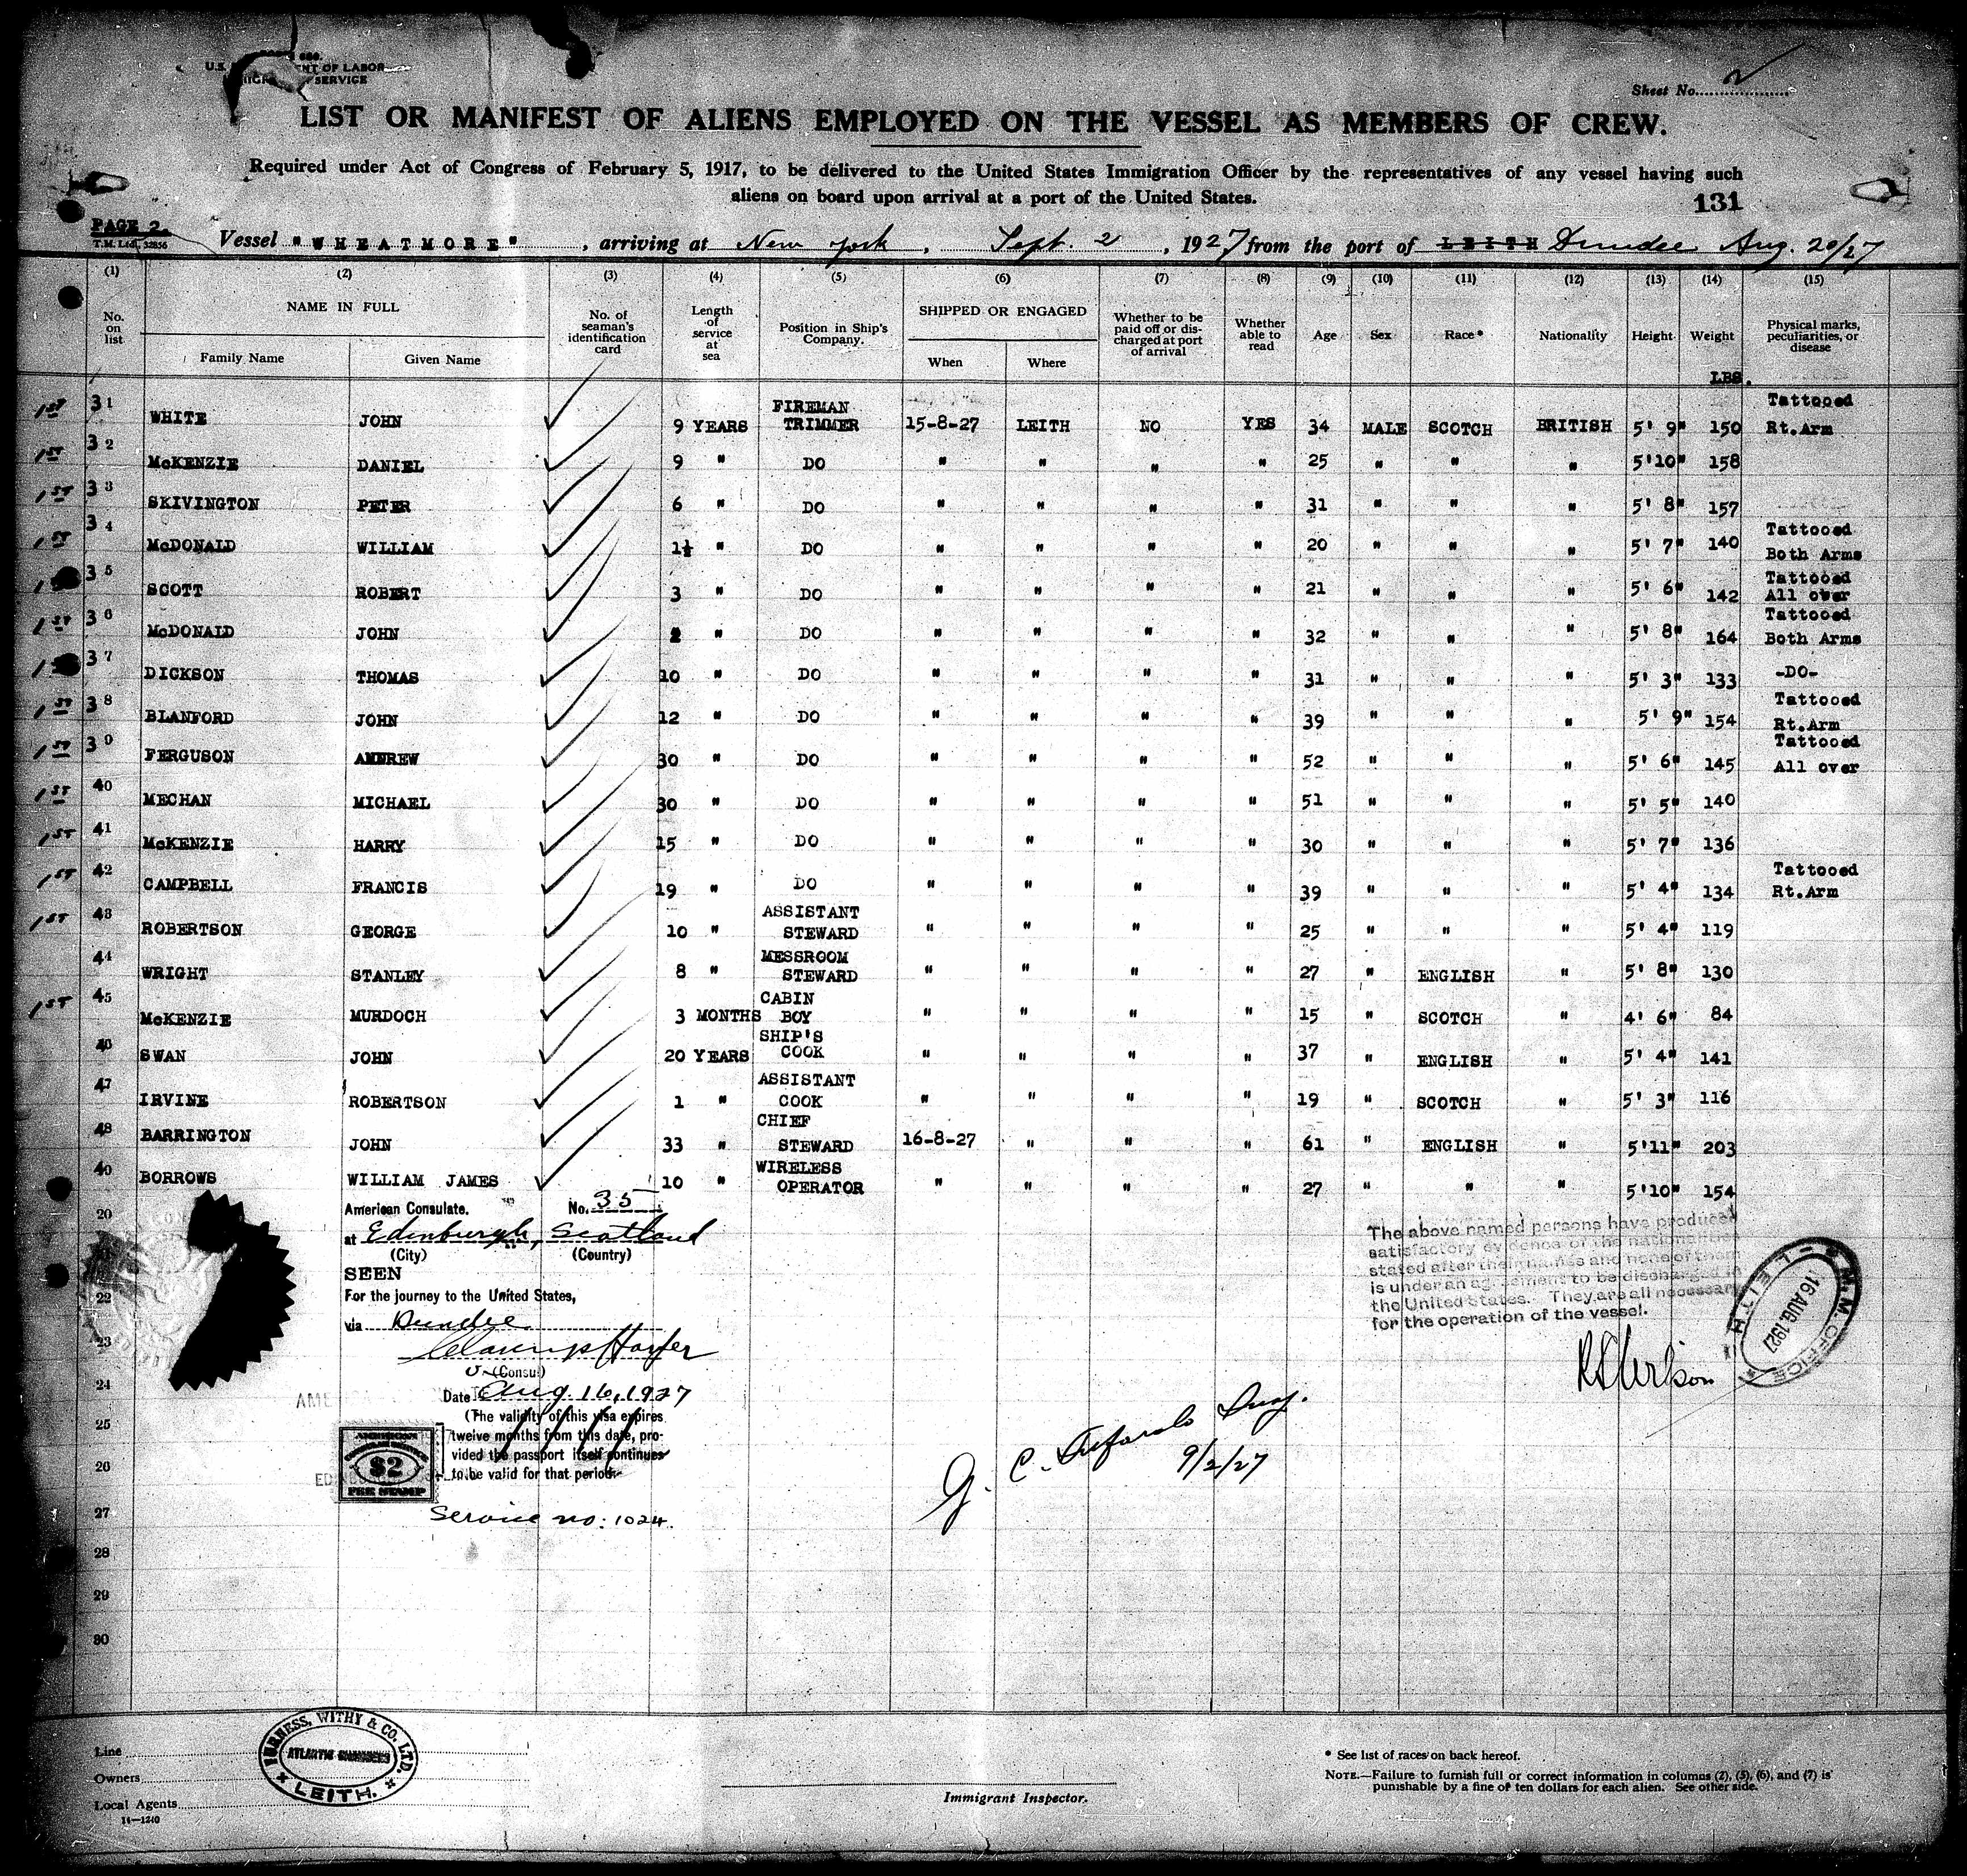 U.S. OF LABOR
SERVICE
Sheet No. 2
LIST OR MANIFEST OF ALIENS EMPLOYED ON THE VESSEL AS MEMBERS OF CREW.
Required under Act of Congress of February 5, 1917, to be delivered to the United States Immigration Officer by the representatives of any vessel having such
aliens on board upon arrival at a port of the United States.
131
PAGE 2.
T.M. Ltd. 32856
Vessel "WHEATMORE", arriving at New York, Sept. 2, 1927 from the port of LEITH Dundee Aug. 20/27
(1) (2) (3) (4) (5) (6) (7) (8) (9) (10) (11) (12) (13) (14) (15)
No. on list NAME IN FULL Family Name Given Name No. of seaman's identification card Length of service at sea Position in Ship's Company. SHIPPED OR ENGAGED When Where Whether to be paid off or discharged at port of arrival Whether able to read Age Sex Race* Nationality Height Weight Physical marks, peculiarities, or disease
LBS.
1st 31 WHITE JOHN 9 YEARS FIREMAN TRIMMER 15-8-27 LEITH NO YES 34 MALE SCOTCH BRITISH 5' 9" 150 Tattooed Rt.Arm
1st 32 McKENZIE DANIEL 9 " DO " " " " 25 " " " 5'10" 158
1st 33 SKIVINGTON PETER 6 " DO " " " " 31 " " " 5' 8" 157
1st 34 McDONALD WILLIAM 1½ " DO " " " " 20 " " " 5' 7" 140 Tattooed Both Arms
35 SCOTT ROBERT 3 " DO " " " " 21 " " " 5' 6" 142 Tattooed All over
1st 36 McDONALD JOHN 2 " DO " " " " 32 " " " 5' 8" 164 Tattooed Both Arms
37 DICKSON THOMAS 10 " DO " " " " 31 " " " 5' 3" 133 -DO-
1st 38 BLANFORD JOHN 12 " DO " " " " 39 " " " 5' 9" 154 Tattooed Rt.Arm
1st 39 FERGUSON ANDREW 30 " DO " " " " 52 " " " 5' 6" 145 Tattooed All over
1st 40 MECHAN MICHAEL 30 " DO " " " " 51 " " " 5' 5" 140
1st 41 McKENZIE HARRY 15 " DO " " " " 30 " " " 5' 7" 136
1st 42 CAMPBELL FRANCIS 19 " DO " " " " 39 " " " 5' 4" 134 Tattooed Rt.Arm
1st 43 ROBERTSON GEORGE 10 " ASSISTANT STEWARD " " " " 25 " " " 5' 4" 119
44 WRIGHT STANLEY 8 " MESSROOM STEWARD " " " " 27 " ENGLISH " 5' 8" 130
1st 45 McKENZIE MURDOCH 3 MONTHS CABIN BOY " " " " 15 " SCOTCH " 4' 6" 84
46 SWAN JOHN 20 YEARS SHIP'S COOK " " " " 37 " ENGLISH " 5' 4" 141
47 IRVINE ROBERTSON 1 " ASSISTANT COOK " " " " 19 " SCOTCH " 5' 3" 116
48 BARRINGTON JOHN 33 " CHIEF STEWARD 16-8-27 " " " 61 " ENGLISH " 5'11" 203
49 BORROWS WILLIAM JAMES 10 " WIRELESS OPERATOR " " " " 27 " " " 5'10" 154
20
22
23
24
25
26
27
28
29
30
American Consulate. No. 35
at Edinburgh, Scotland
(City) (Country)
SEEN
For the journey to the United States,
via Dundee
(Consul)
Date Aug. 16, 1927
(The validity of this visa expires
twelve months from this date, pro-
vided the passport itself continues
to be valid for that period.
AMERICAN
$2
FEE STAMP
Service no: 1024.
The above named persons have produced
satisfactory evidence of the nationalities
stated after their names and none of them
is under an agreement to be discharged in
the United States. They are all necessary
for the operation of the vessel.
M.M. OFFICE
16 AUG. 1927
LEITH
9/2/27
Line
Owners
Local Agents
14—1240
FURNESS, WITHY & CO. LTD.
LEITH.
Immigrant Inspector.
* See list of races on back hereof.
NOTE.—Failure to furnish full or correct information in columns (2), (5), (6), and (7) is
punishable by a fine of ten dollars for each alien. See other side.